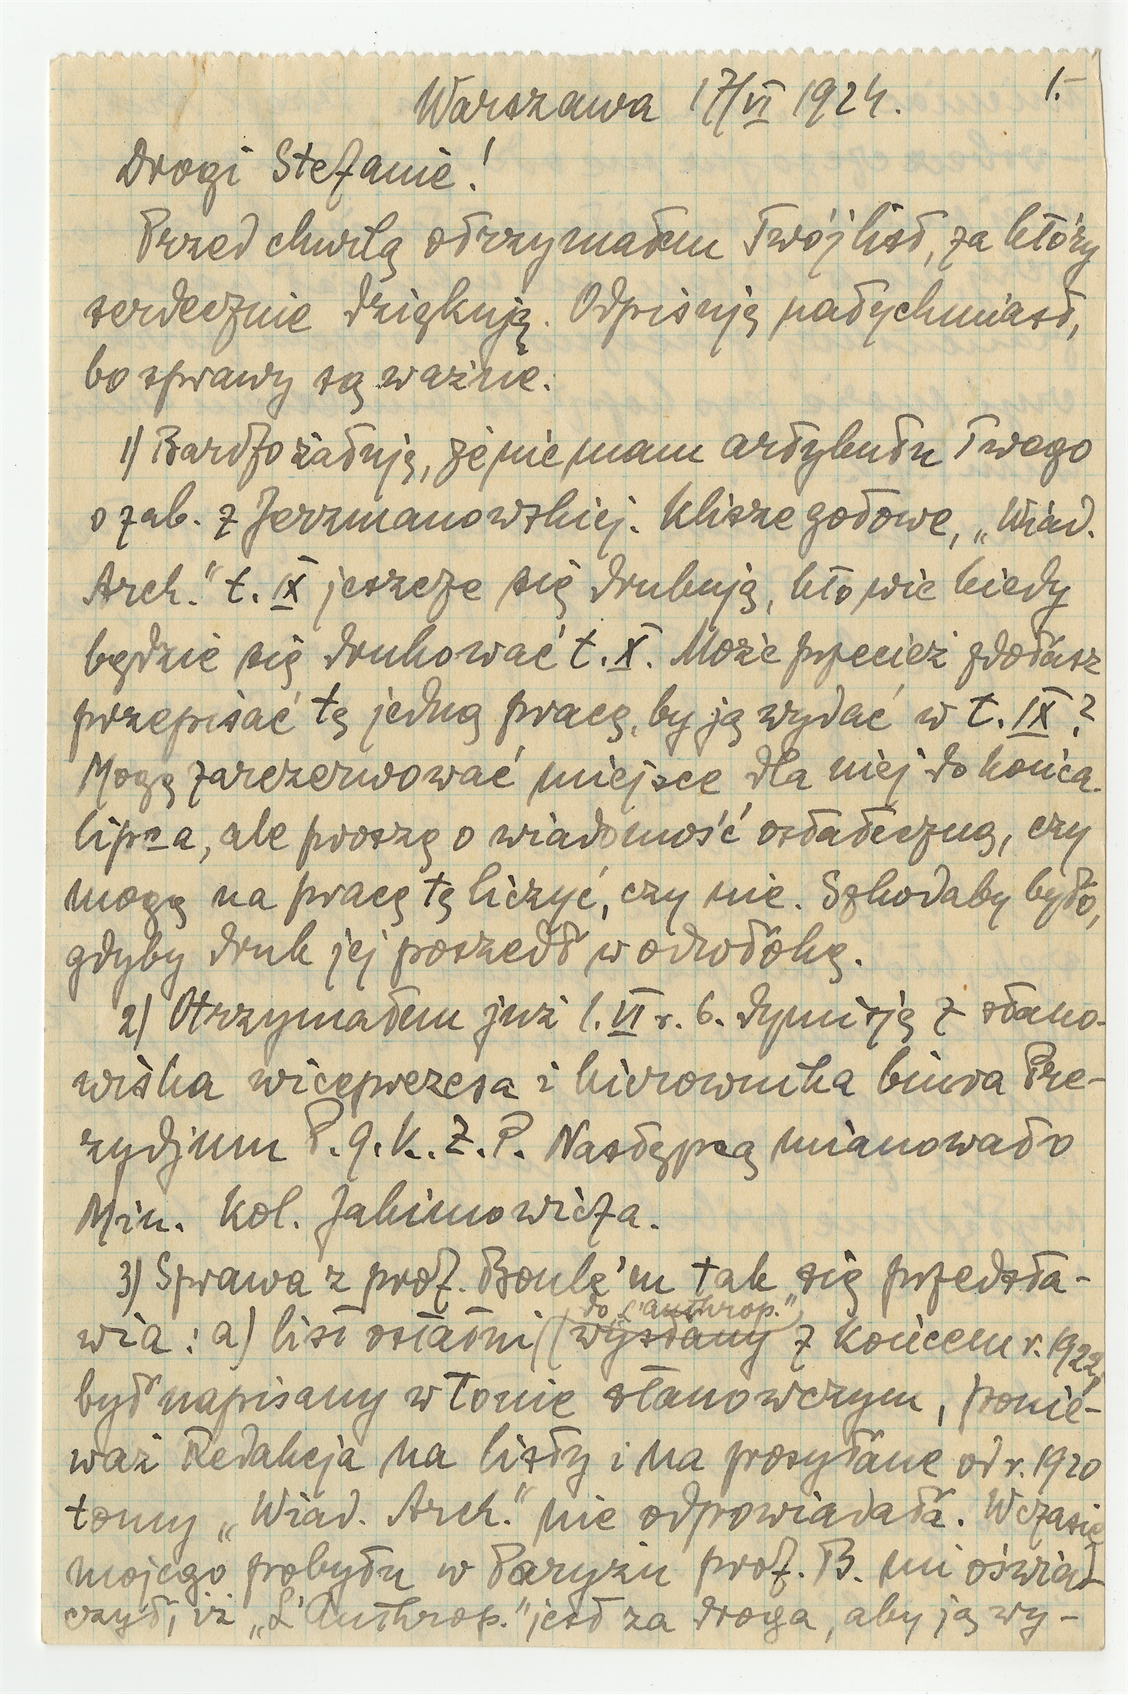 1.-
Warszawa 17/VI 1924.
Drogi Stefanie!
Przed chwilą otrzymałem Twój list, za który
serdecznie dziękuję. Odpisuję natychmiast,
bo sprawy są ważne.
1) Bardzo żałuję, że nie mam artykułu Twego
o zab. z Jerzmanowskiej. Klisze gotowe, „Wiad.
Arch." t. IX jeszcze się drukują, kto wie kiedy
będzie się drukować t. X. Może przecież zdołasz
przepisać tę jedną pracę, by ją wydać w t. IX?
Mogę zarezerwować miejsce dla niej do końca
lipca, ale proszę o wiadomość ostateczną, czy
mogę na pracę tę liczyć, czy nie. Szkodaby było,
gdyby druk jej poszedł w odwłokę.
2) Otrzymałem już 1.VI r. b. dymisję z stano-
wiska wiceprezesa i kierownika biura Pre-
zydjum P.G.K.Z.P. Następcą mianowało
Min. Kol. Jakimowicza.
3) Sprawa z prof. Boule'm tak się przedsta-
wia: a) list ostatni (wysłany do „L'anthrop.") z końcem r. 1922,
był napisany w tonie stanowczym, ponie-
waż Redakcja na listy i na posyłane od r. 1920
tomy „Wiad. Arch." nie odpowiadała. W czasie
mojego pobytu w Paryżu prof. B. mi oświad-
czył, iż „L'Anthrop." jest za droga, aby ją wy-